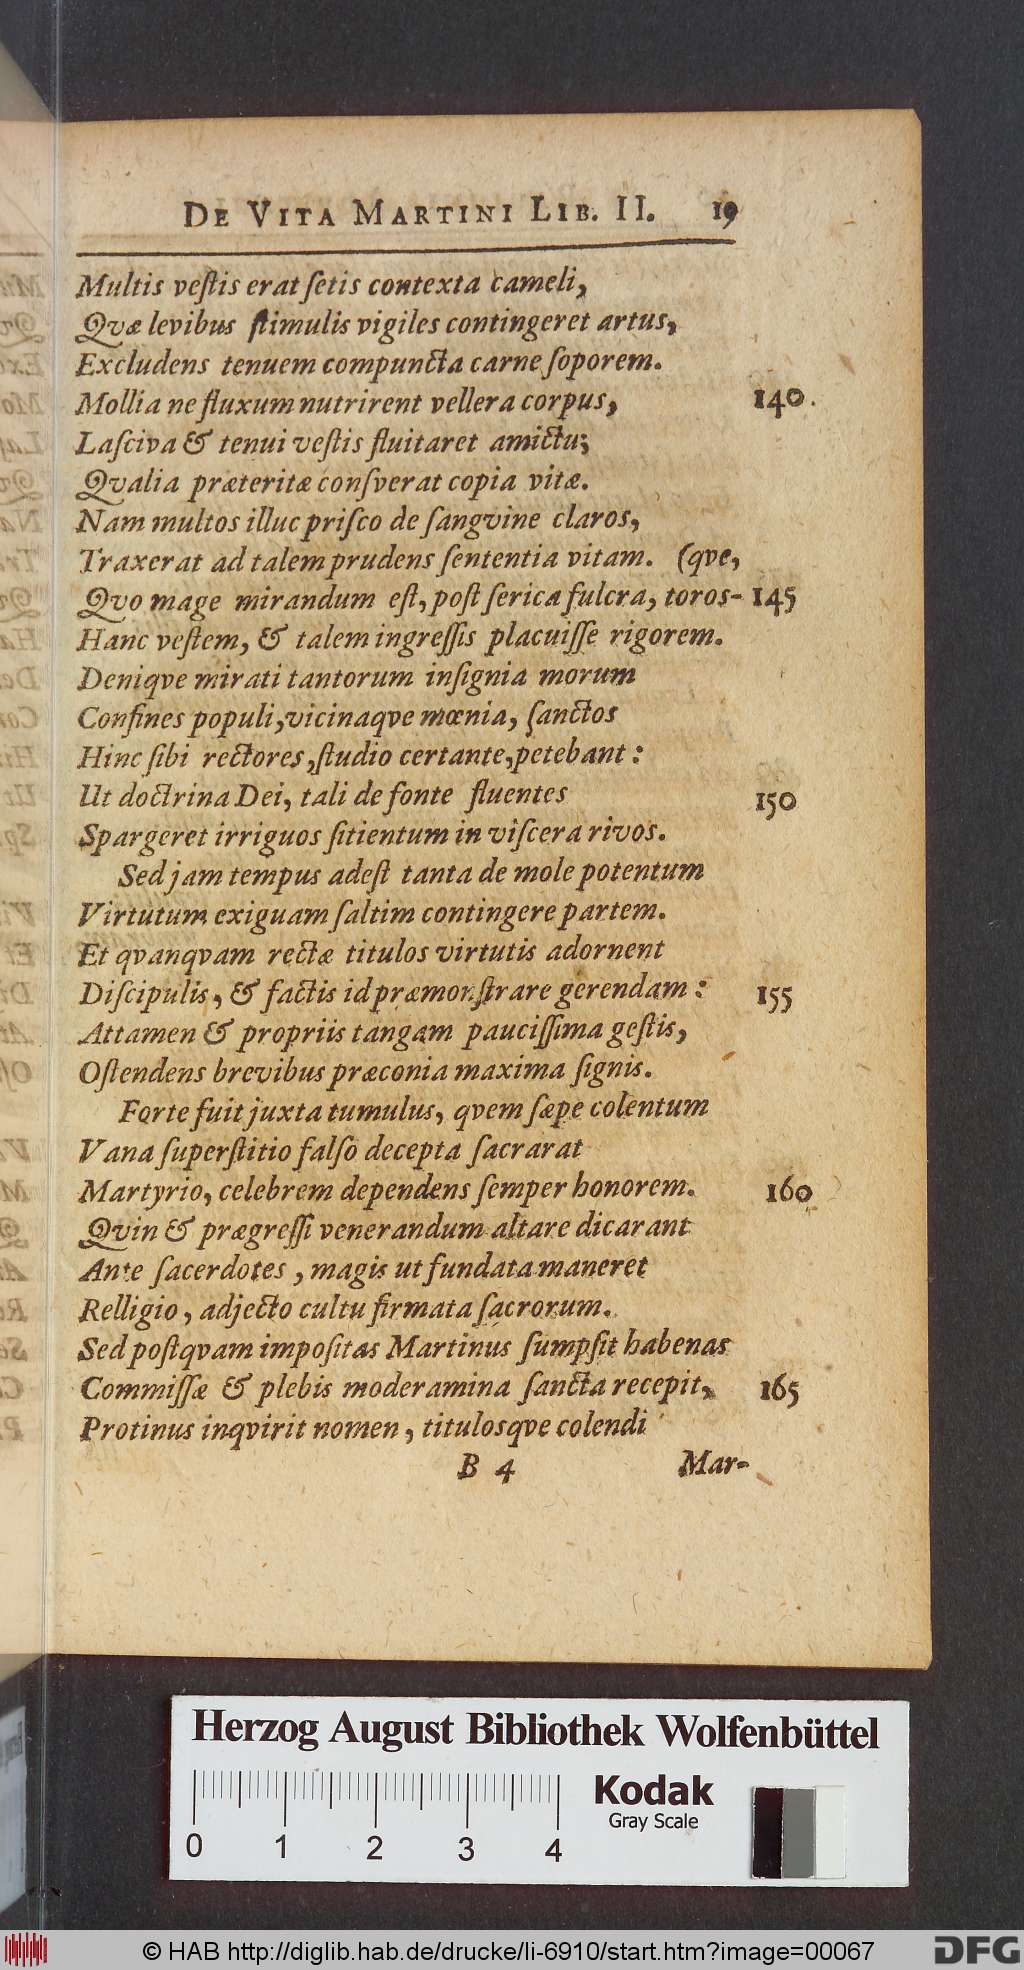 DE VITA MARTINI LIB. II. 19
Multis veſtis erat ſetis contexta cameli,
Qvæ levibus ſtimulis vigiles contingeret artus,
Excludens tenuem compuncta carne ſoporem.
Mollia ne fluxum nutrirent vellera corpus, 140.
Laſciva & tenui veſtis fluitaret amictu;
Qvalia præteritæ conſverat copia vitæ.
Nam multos illuc priſco de ſangvine claros,
Traxerat ad talem prudens ſententia vitam. (qve,
Qvo mage mirandum eſt, poſt ſerica fulcra, toros- 145
Hanc veſtem, & talem ingreſſis placuiſſe rigorem.
Deniqve mirati tantorum inſignia morum
Confines populi, vicinaqve mœnia, ſanctos
Hinc ſibi rectores, ſtudio certante, petebant:
Ut doctrina Dei, tali de fonte fluentes 150
Spargeret irriguos ſitientum in viſcera rivos.
Sed jam tempus adeſt tanta de mole potentum
Virtutum exiguam ſaltim contingere partem.
Et qvanqvam rectæ titulos virtutis adornent
Diſcipulis, & factis id præmonſtrare gerendam: 155
Attamen & propriis tangam pauciſſima geſtis,
Oſtendens brevibus præconia maxima ſignis.
Forte fuit juxta tumulus, qvem ſæpe colentum
Vana ſuperſtitio falſo decepta ſacrarat
Martyrio, celebrem dependens ſemper honorem. 160
Qvin & prægreſſi venerandum altare dicarant
Ante ſacerdotes, magis ut fundata maneret
Relligio, adjecto cultu firmata ſacrorum.
Sed poſtqvam impoſitas Martinus ſumpſit habenas
Commiſſæ & plebis moderamina ſancta recepit, 165
Protinus inqvirit nomen, titulosqve colendi
B 4 Mar-
Herzog August Bibliothek Wolfenbüttel
0 1 2 3 4
Kodak
Gray Scale
© HAB http://diglib.hab.de/drucke/li-6910/start.htm?image=00067
DFG